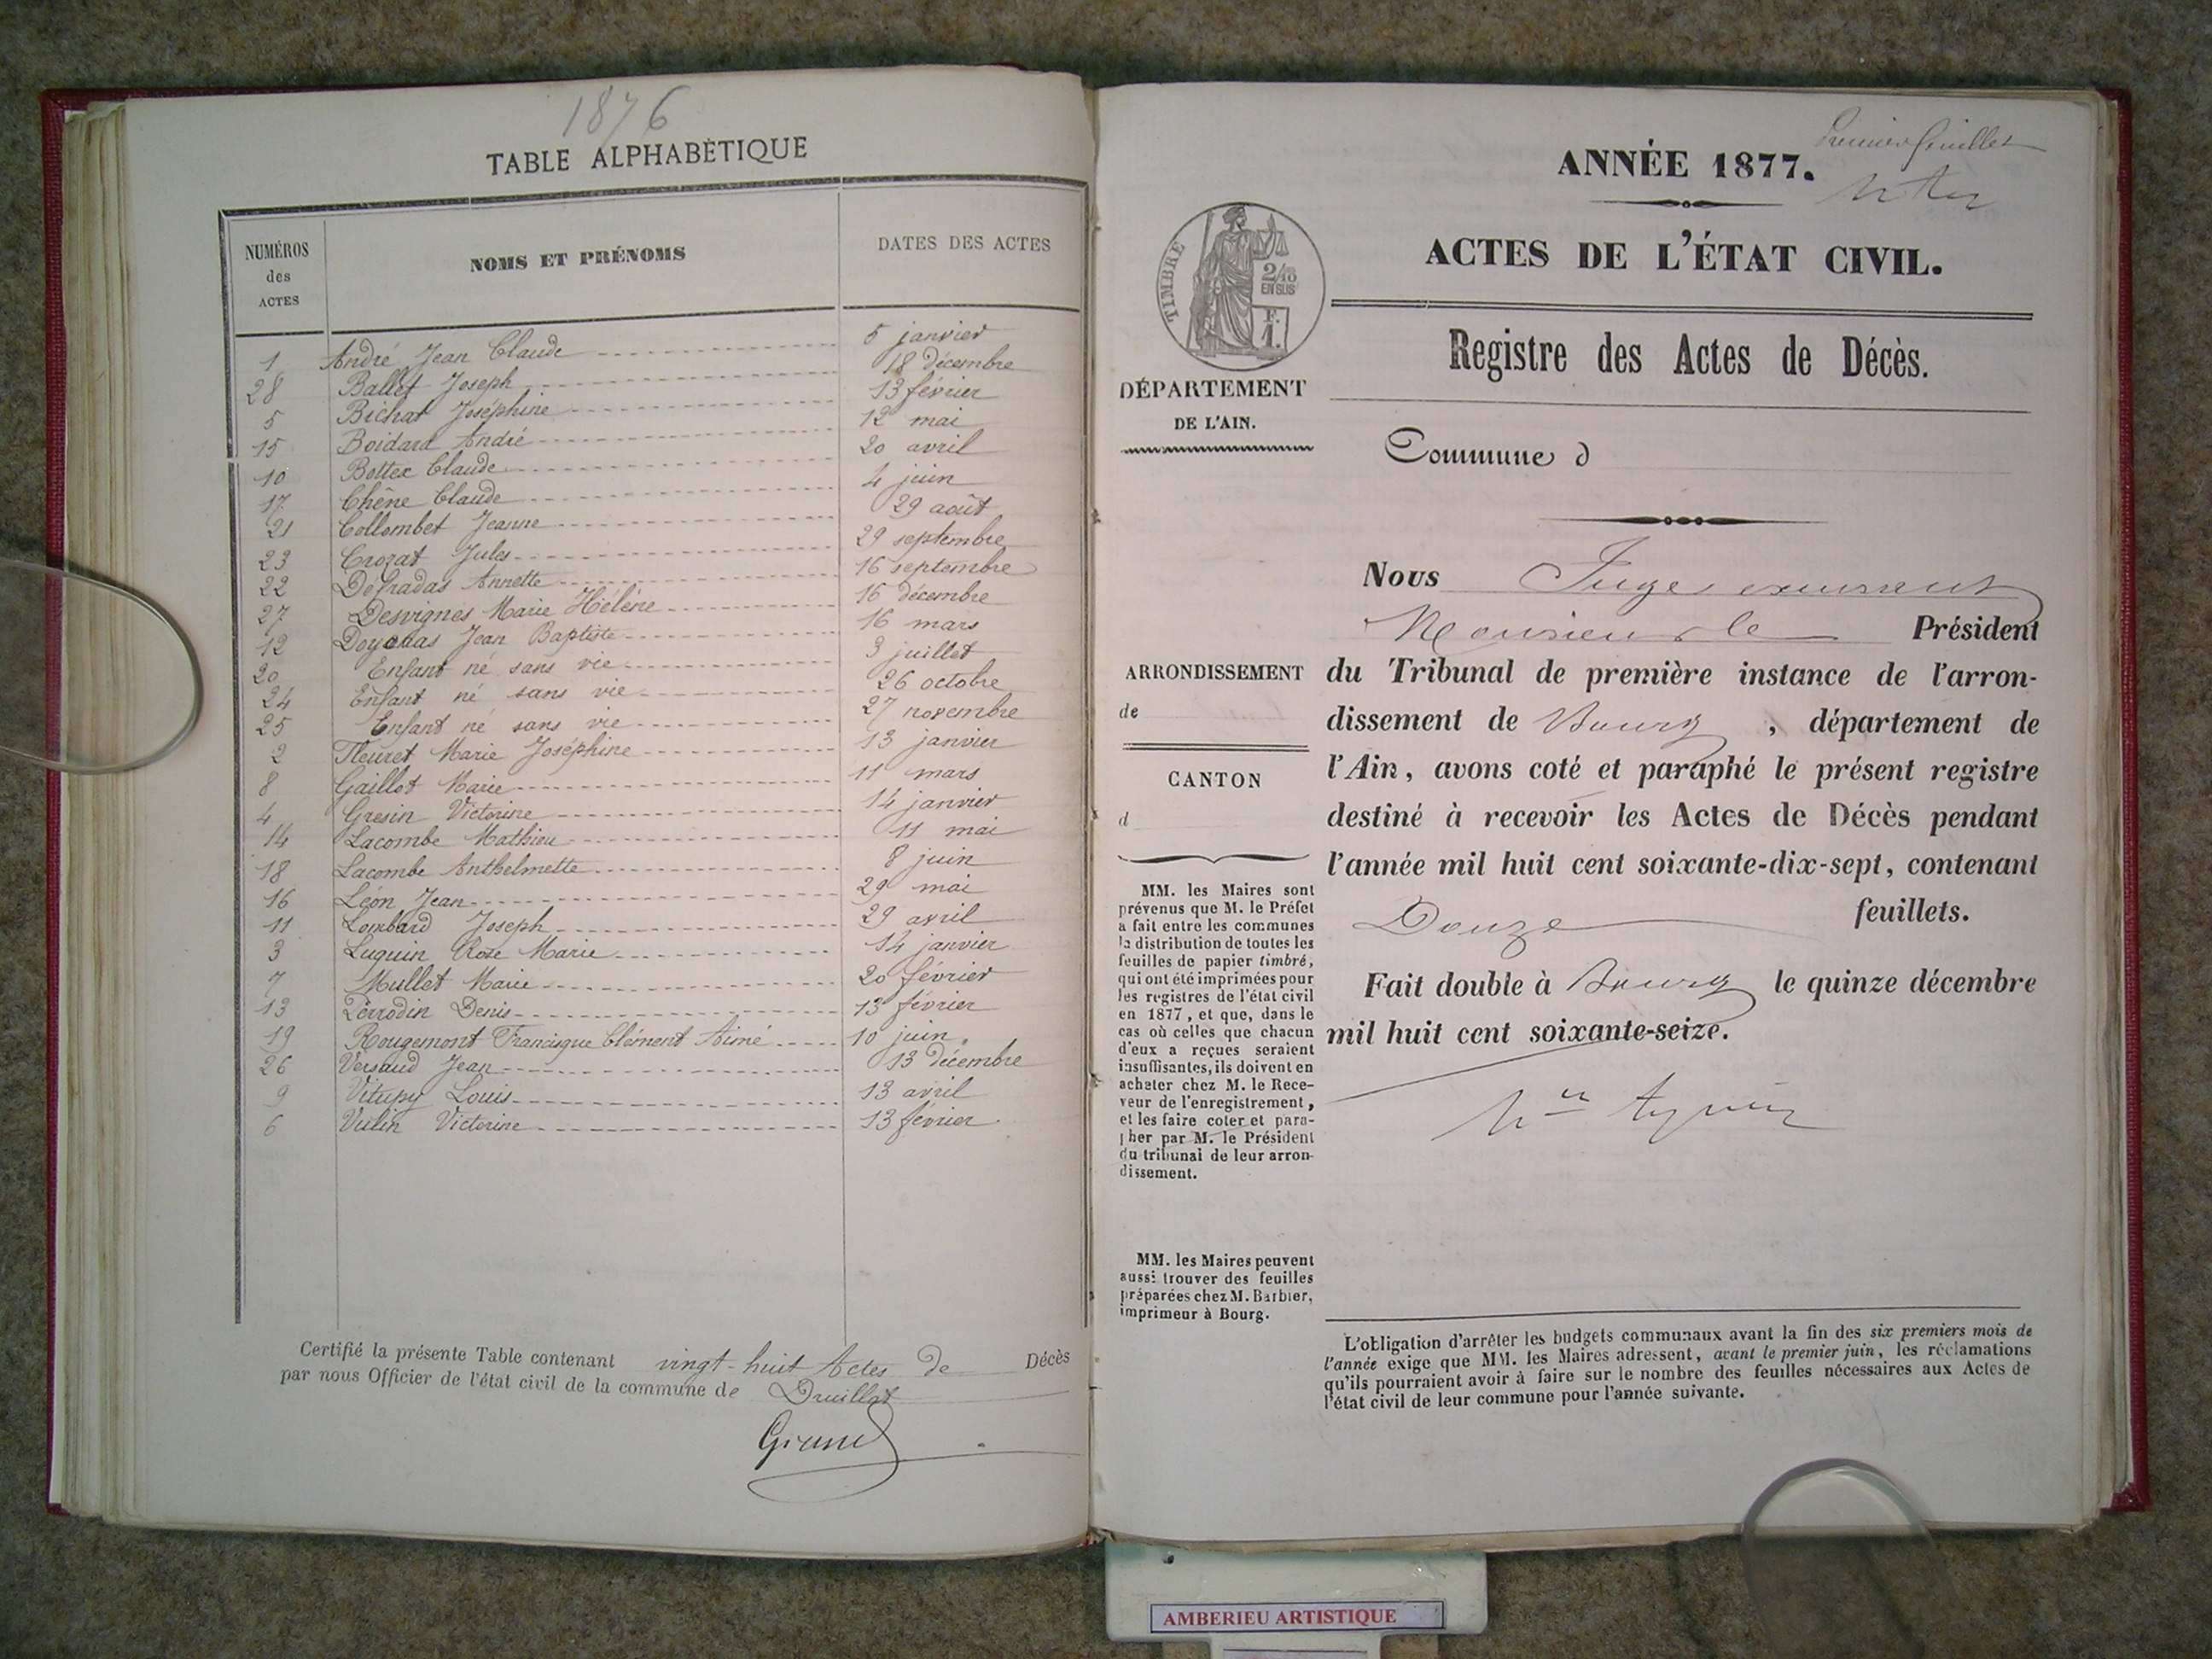 1876
TABLE ALPHABÉTIQUE
NUMÉROS des ACTES NOMS ET PRÉNOMS DATES DES ACTES
1 André Jean Claude 5 janvier
28 Ballet Joseph 18 décembre
5 Bichat Joséphine 13 février
15 Boidard André 12 mai
10 Bottex Claude 20 avril
17 Chêne Claude 4 juin
21 Collombet Jeanne 29 août
23 Crozat Jules 29 septembre
22 Défradas Annette 16 septembre
27 Desvignes Marie Hélène 16 décembre
12 Doyonas Jean Baptiste 16 mars
20 Enfant né sans vie 3 juillet
24 Enfant né sans vie 26 octobre
25 Enfant né sans vie 27 novembre
2 Fleuret Marie Joséphine 13 janvier
8 Gaillot Marie 11 mars
4 Gresin Victorine 14 janvier
14 Lacombe Mathieu 11 mai
18 Lacombe Anthelmette 8 juin
16 Léon Jean 29 mai
11 Lombard Joseph 29 avril
3 Luquin Rose Marie 14 janvier
7 Mullet Marie 20 février
13 Perrodin Denis 13 février
19 Rougemont Francisque Clément Aimé 10 juin
26 Versaud Jean 13 décembre
9 Vitupy Louis 13 avril
6 Vulin Victorine 13 février
Certifié la présente Table contenant vingt-huit Actes de Décès
par nous Officier de l'état civil de la commune de Druillat
Premier feuillet
ANNÉE 1877.
ACTES DE L'ÉTAT CIVIL.
TIMBRE
2/10
EN SUS
F.
1.
Registre des Actes de Décès.
DÉPARTEMENT
DE L'AIN.
Commune d
Nous Juge
Monsieur le Président
ARRONDISSEMENT
de
CANTON
d
du Tribunal de première instance de l'arron-
dissement de Bourg, département de
l'Ain, avons coté et paraphé le présent registre
destiné à recevoir les Actes de Décès pendant
l'année mil huit cent soixante-dix-sept, contenant
Douze feuillets.
Fait double à Bourg le quinze décembre
mil huit cent soixante-seize.
MM. les Maires sont
prévenus que M. le Préfet
a fait entre les communes
la distribution de toutes les
feuilles de papier timbré,
qui ont été imprimées pour
les registres de l'état civil
en 1877, et que, dans le
cas où celles que chacun
d'eux a reçues seraient
insuffisantes, ils doivent en
acheter chez M. le Rece-
veur de l'enregistrement,
et les faire coter et para-
pher par M. le Président
du tribunal de leur arron-
dissement.
MM. les Maires peuvent
aussi trouver des feuilles
préparées chez M. Barbier,
imprimeur à Bourg.
L'obligation d'arrêter les budgets communaux avant la fin des six premiers mois de
l'année exige que MM. les Maires adressent, avant le premier juin, les réclamations
qu'ils pourraient avoir à faire sur le nombre des feuilles nécessaires aux Actes de
l'état civil de leur commune pour l'année suivante.
AMBERIEU ARTISTIQUE